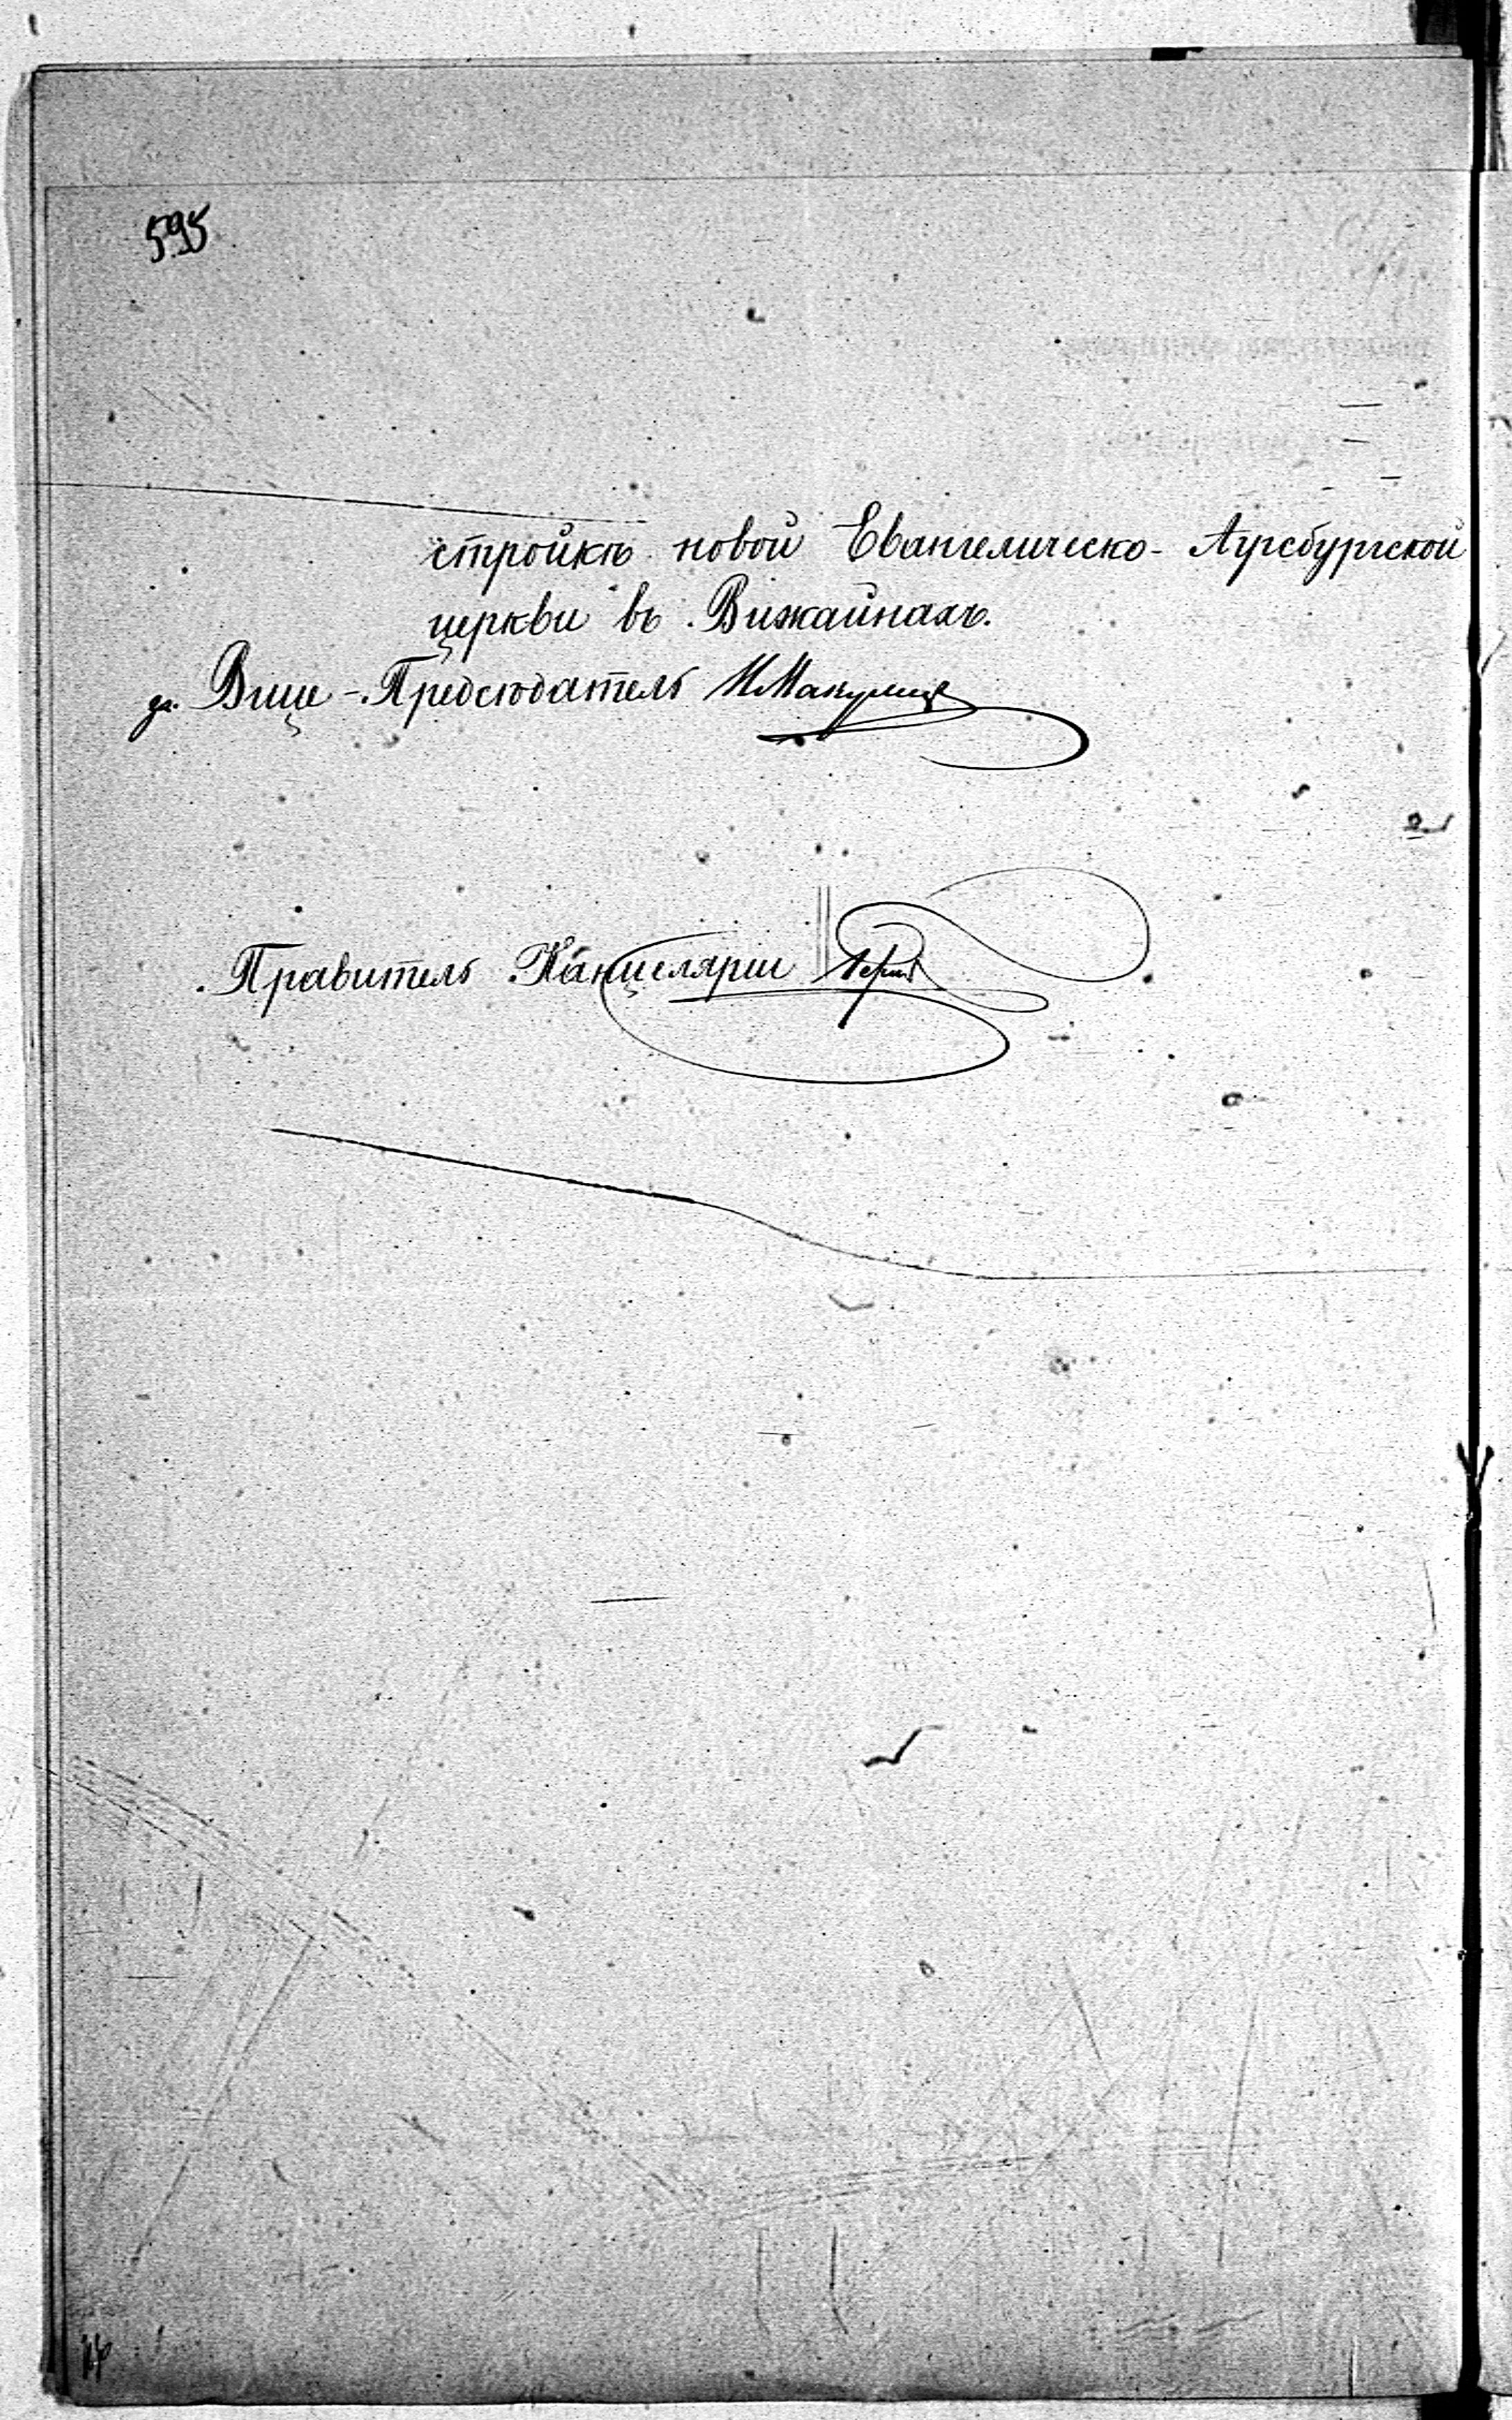 595
стройкѣ новой Евангелическо-Аугсбургской
церкви въ Вижайнахъ.
Вице-Предсѣдатель
Правитель Канцеляріи